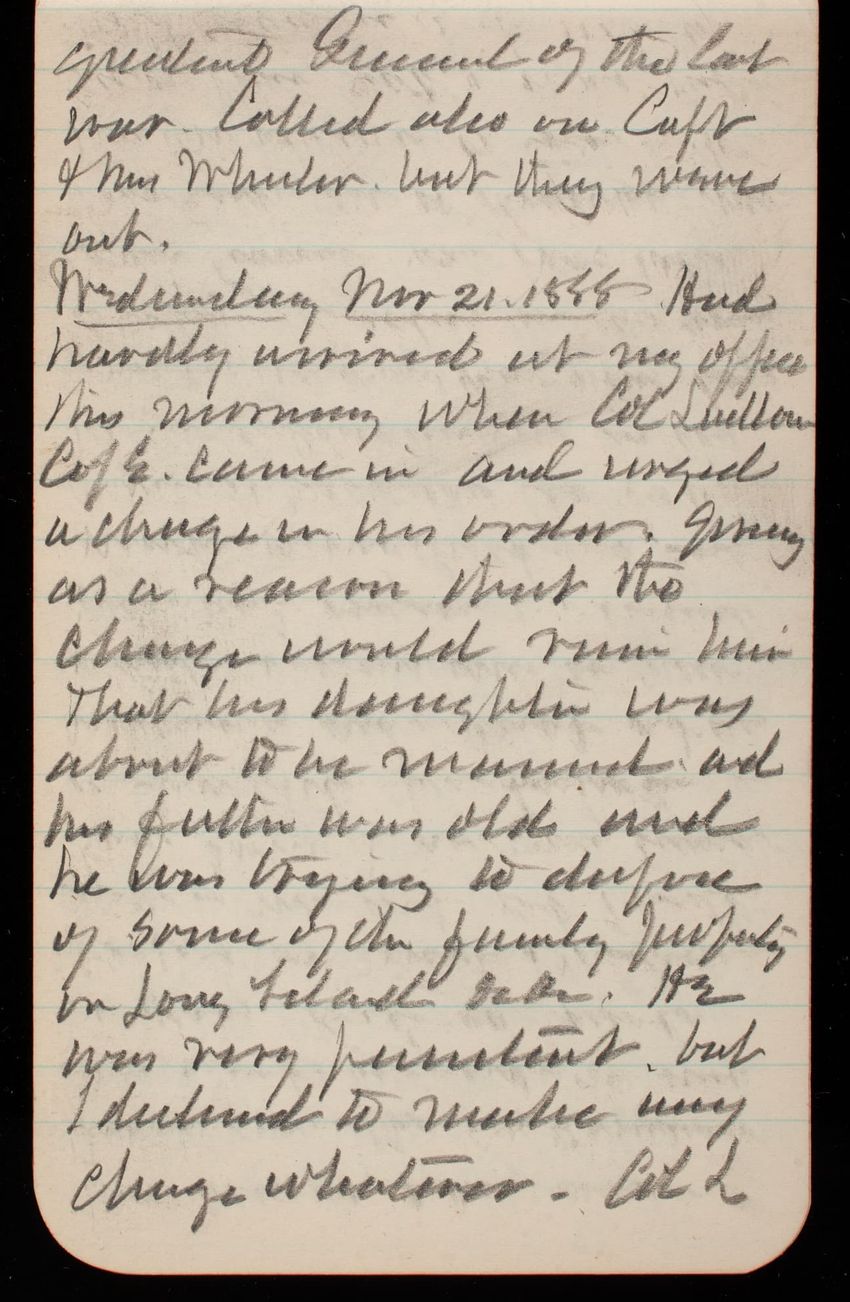 greatest General of the last
war. Called also on Capt
& Mrs Wheeler. but they were
out.
Wednesday Nov 21. 1888 Had
hardly arrived at my office
this morning when Col Ludlow
C of E. came in and urged
a change in his orders. Giving
as a reason that the
change would ruin him
that his daughter was
about to be married and
his father was old and
he was trying to dispose
of some of the family property
on Long Island &c &c. He
was very penitent. but
I declined to make any
change whatever. Col L